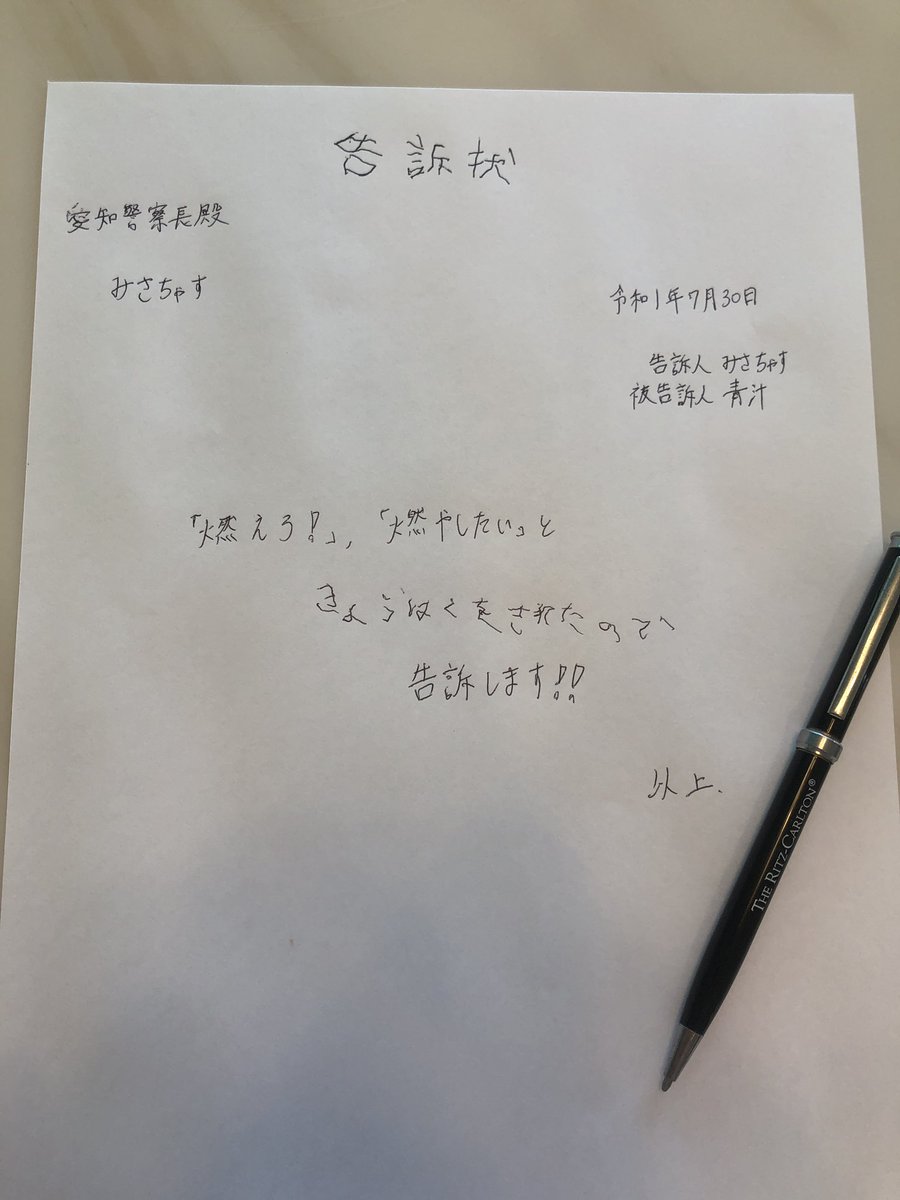 告訴状
愛知警察長殿
みさちゃす
令和1年7月30日
告訴人 みさちゃす
被告訴人 青汁
「燃えろ!」,「燃やしたい」と
きょうはくをされたので
告訴します!!
以上.
THE RITZ-CARLTON®